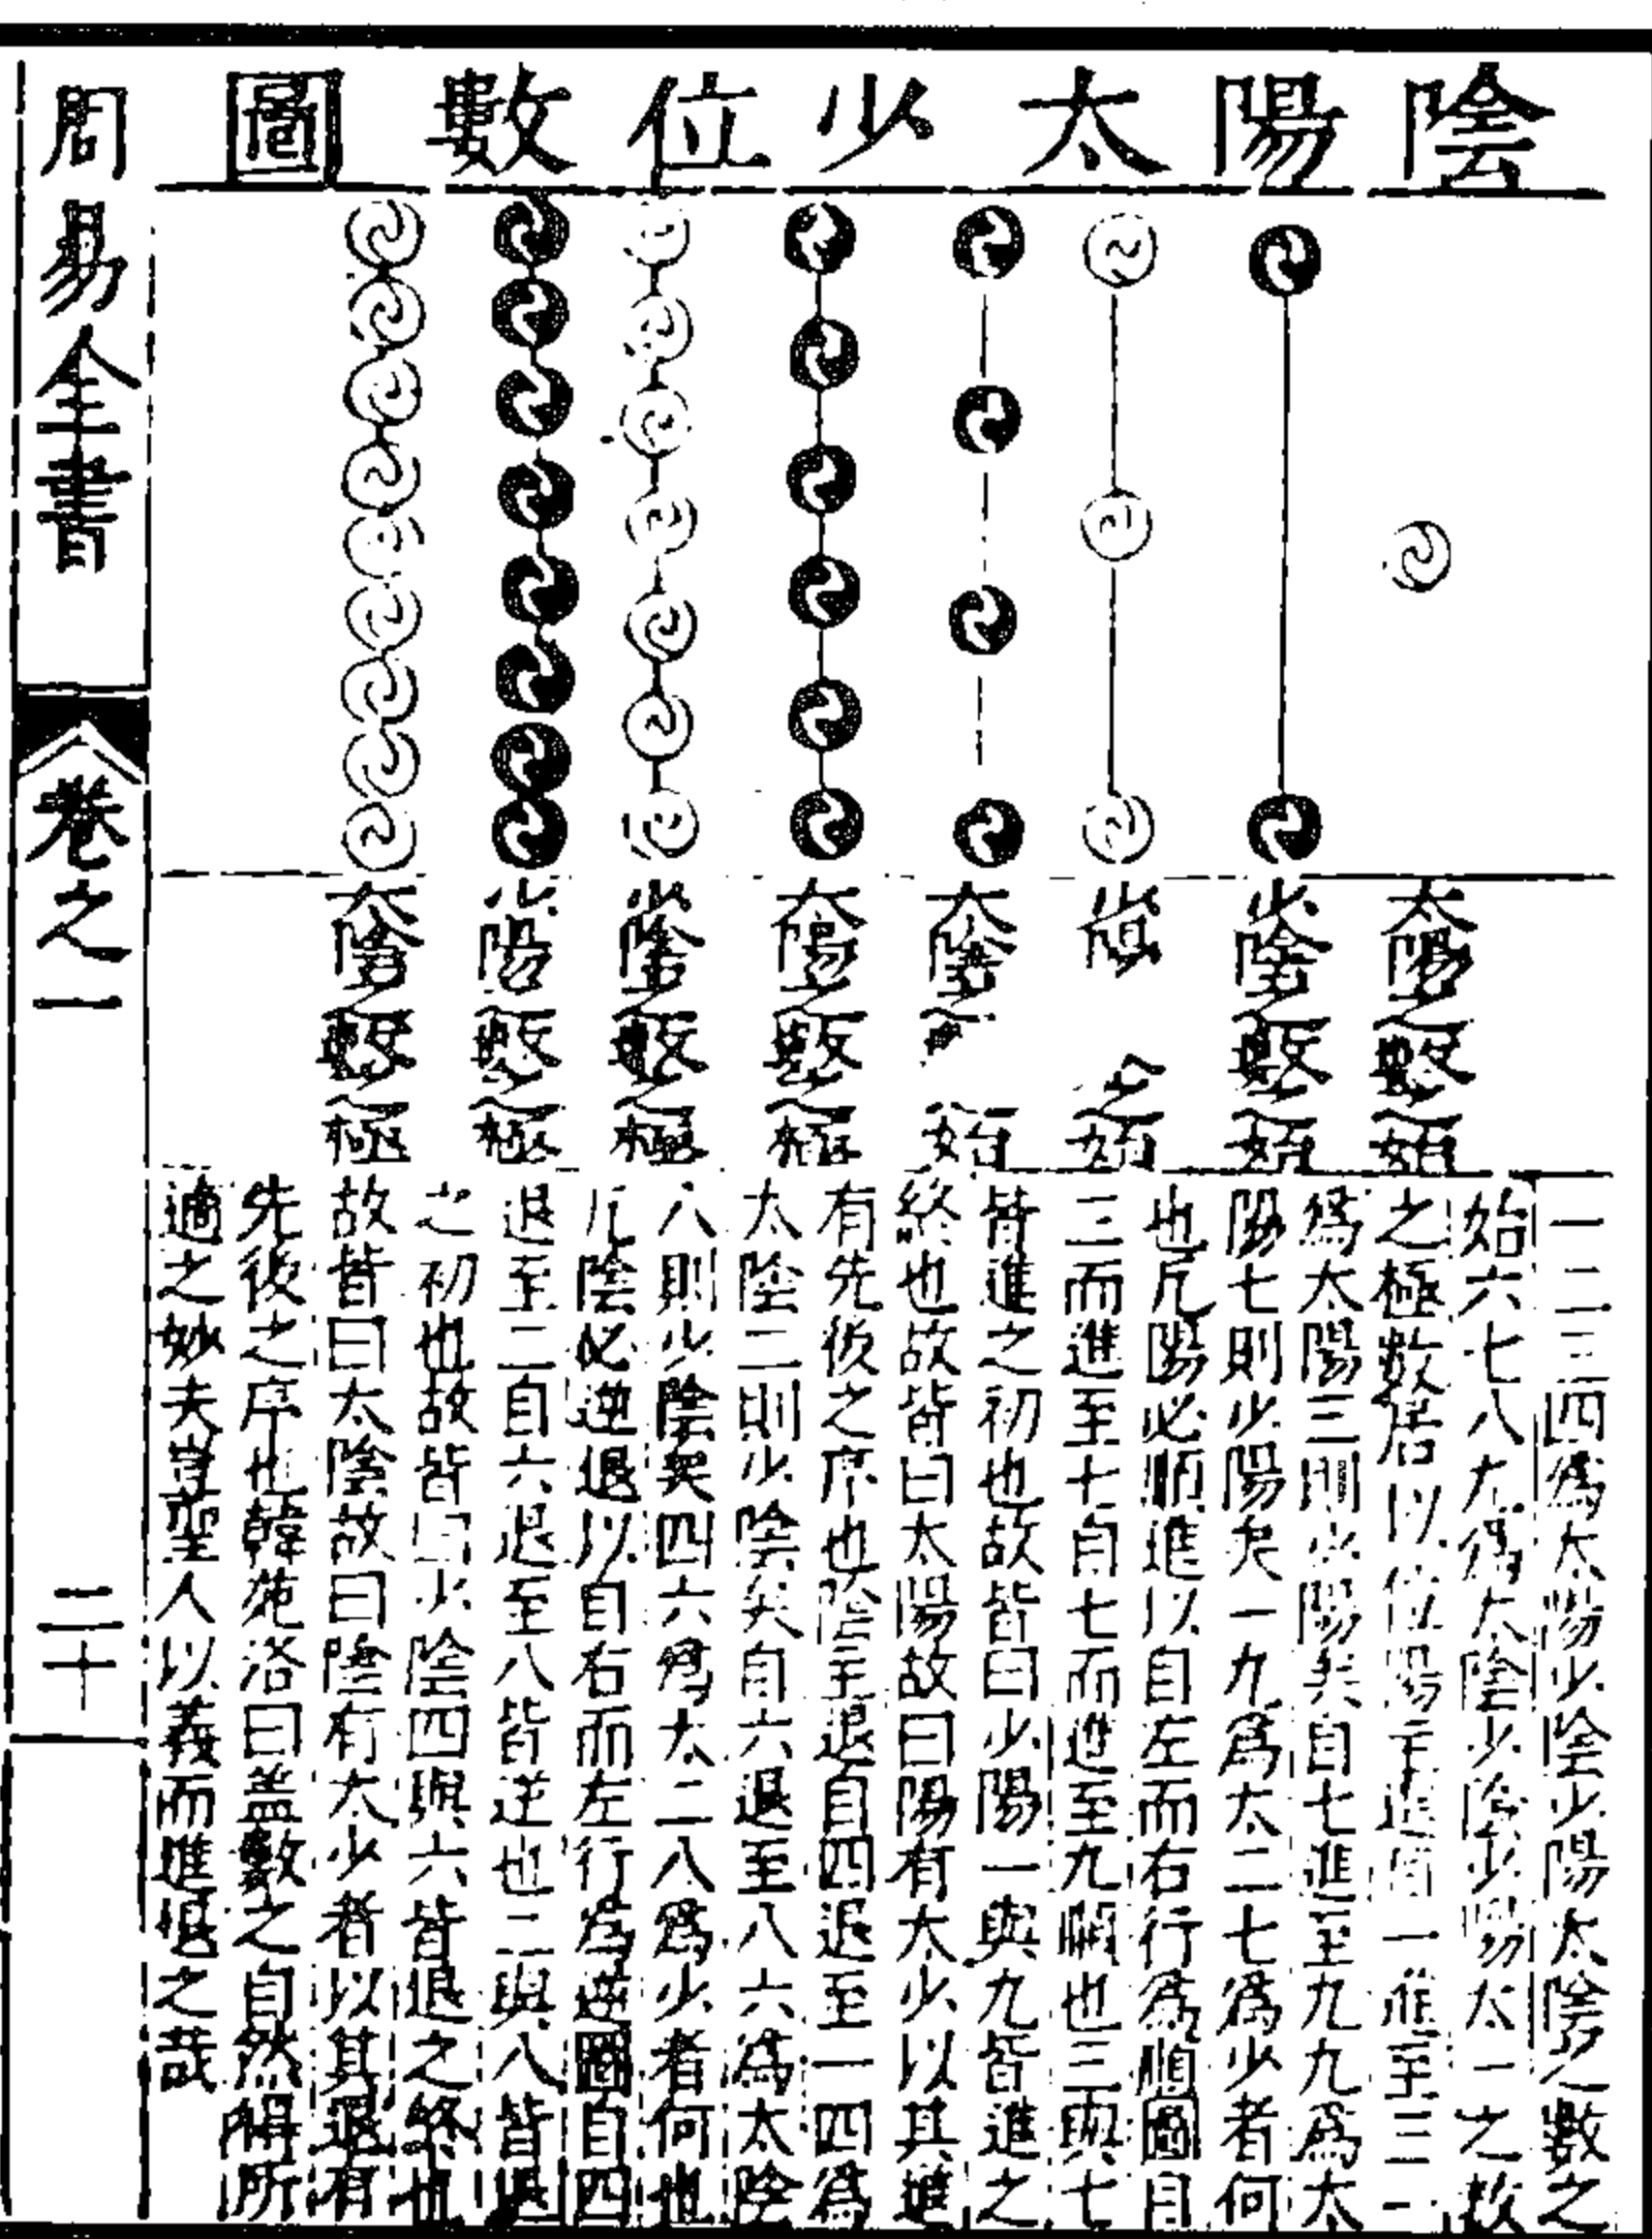 陰陽太少位數圖
太陽之數之始
少陰之數之始
少陽 之始
太陰之 始
太陽之數之極
少陰之數之極
少陽之數之極
太陰之數之極
一二三四爲太陽少陰少陽太陰之數之
始六七八九爲太陰少陰少陽太一之數
之極數居以位陽主進自一進至三一
爲太陽三則少陽矣自七進至九九爲太
陽七則少陽矣一九爲太二七爲少者何
也凡陽必順進以自左而右行爲順圖自
三而進至七自七而進至九順也三與七
皆進之初也故皆曰少陽一與九皆進之
終也故皆曰太陽故曰陽有太少以其進
有先後之序也陰主退自四退至一四爲
太陰二則少陰矣自六退至八六爲太陰
八則少陰矣四六爲太二八爲少者何也
凡陰必逆退以自右而左行爲逆圖自四
退至二自六退至八皆逆也二與八皆退
之初也故皆曰少陰四與六皆退之終也
故皆曰太陰故曰陰有太少者以其退有
先後之序也韓苑洛曰蓋數之自然得所
適之妙夫豈聖人以義而進退之哉
周易全書
卷之一
二十